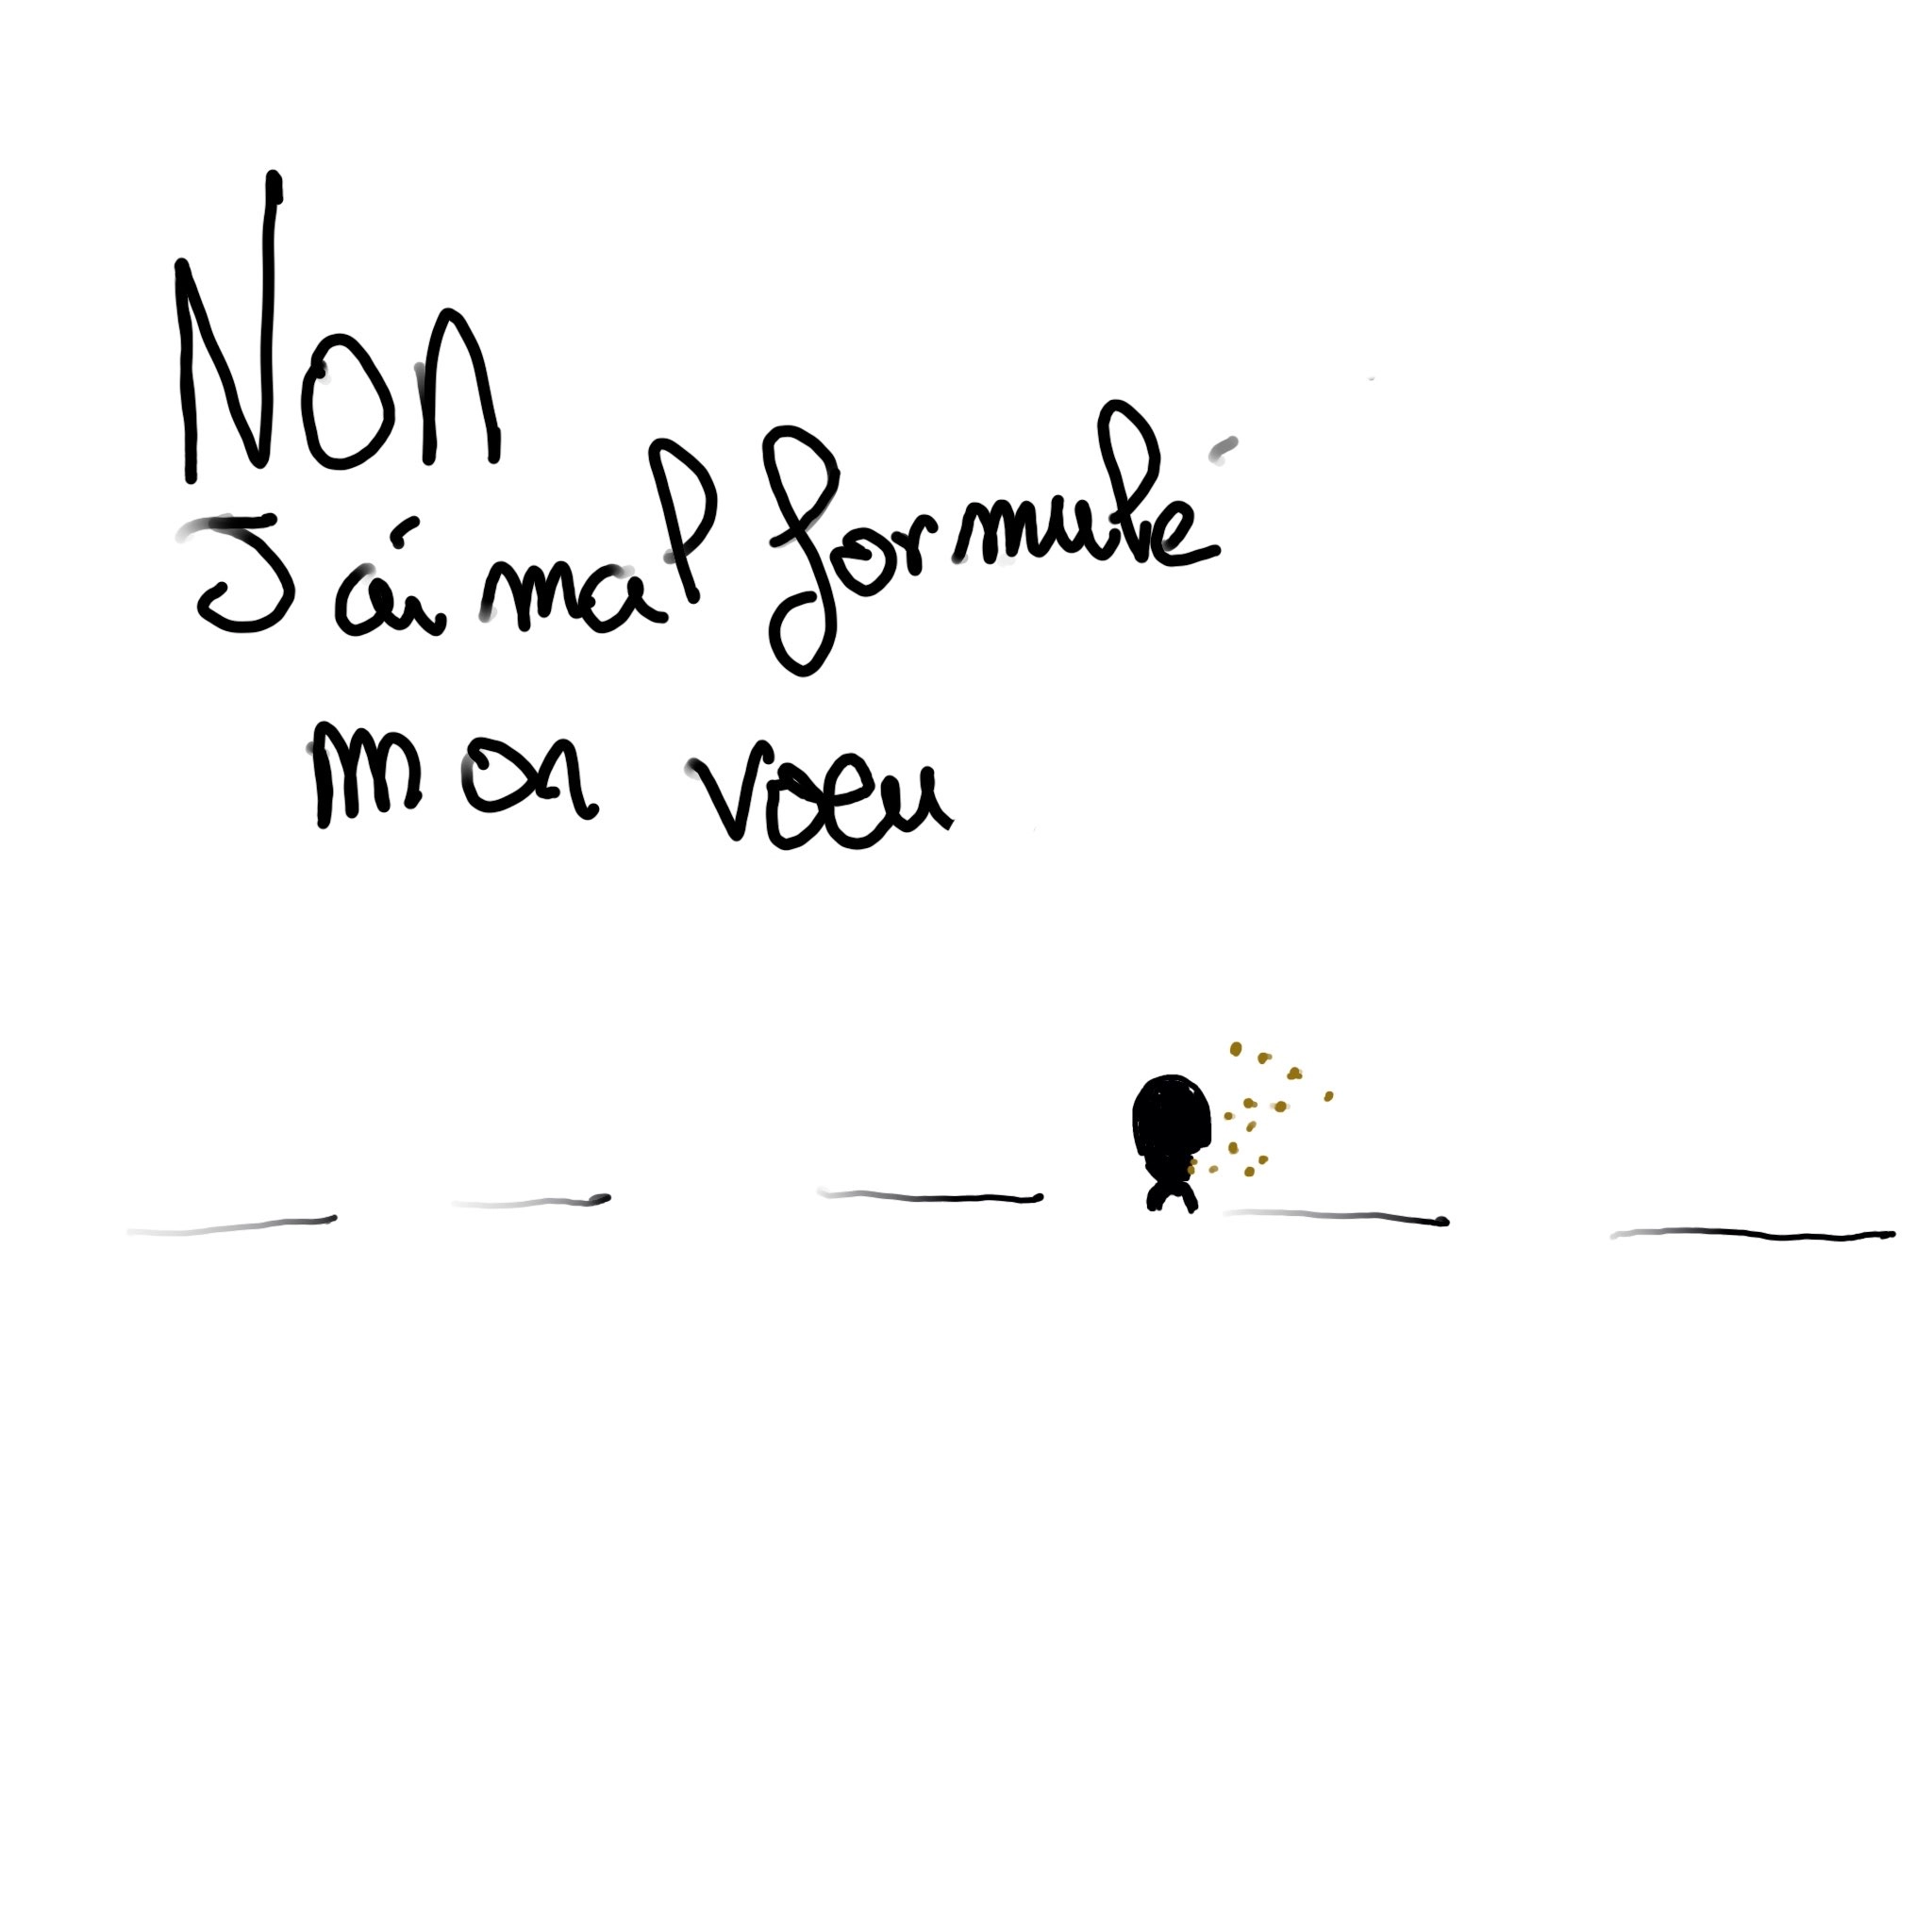 Non
J'ai mal formulé
mon voeu